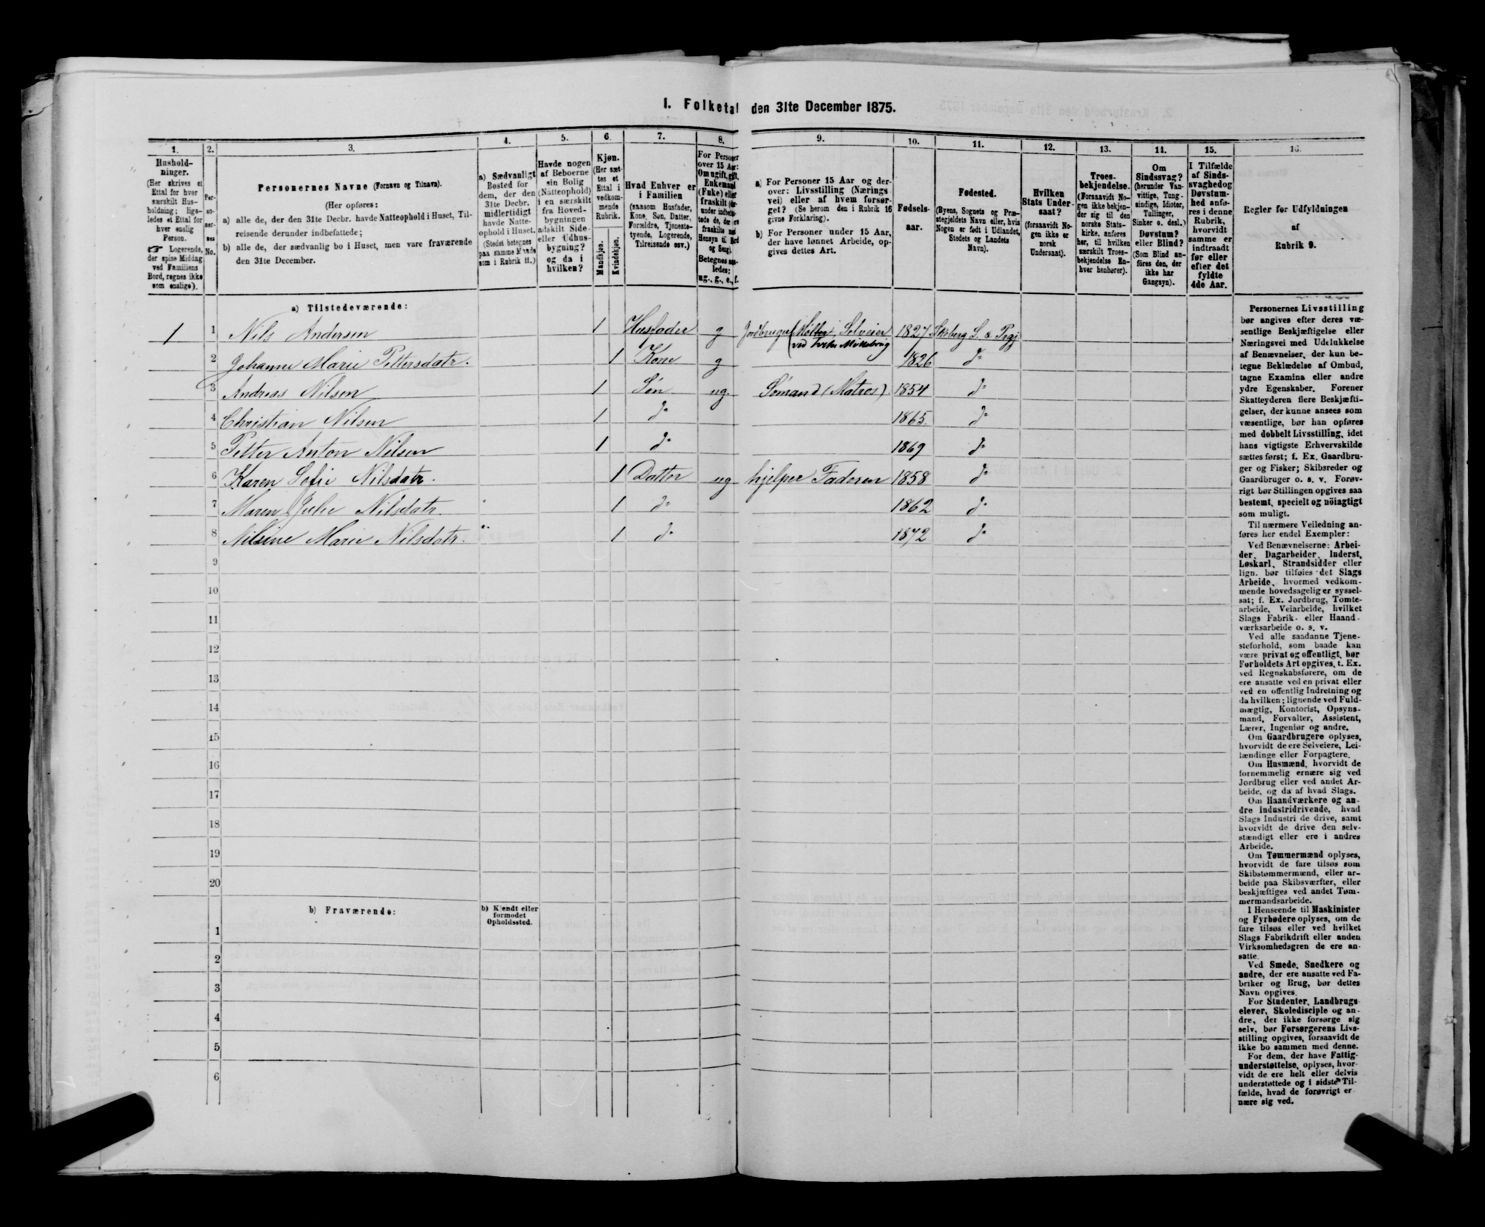 I. Folketal den 31te December 1875.
1.
Hushold-
ninger.
(Her skrives et
Ettal for hver
særskilt Hus-
holdning; lige-
ledes et Ettal for
hver enslig
Person.
☞ Logerende,
der spise Middag
ved Familiens
Bord, regnes ikke
som enslige).
2.
Per-
so-
ner-
nes
No.
3.
Personernes Navne (Fornavn og Tilnavn).
(Her opføres:
a) alle de, der den 31te Decbr. havde Natteophold i Huset, Til-
reisende derunder indbefattede;
b) alle de, der sædvanlig bo i Huset, men vare fraværende
den 31te December.
4.
a) Sædvanligt
Bosted for
dem, der den
31te Decbr.
midlertidigt
havde Natte-
ophold i Huset.
(Stedet betegnes
paa samme Maade
som i Rubrik 11.)
5.
Havde nogen
af Beboerne
sin Bolig
(Natteophold)
i en særskilt
fra Hoved-
bygningen
adskilt Side-
eller Udhus-
bygning?
og da i
hvilken?
6.
Kjøn.
(Her sæt-
tes et
Ettal i
vedkom-
mende
Rubrik.
Mandkjøn.
Kvindekjøn.
7.
Hvad Enhver er
i Familien
(saasom Husfader,
Kone, Søn, Datter,
Forældre, Tjeneste-
tyende, Logerende,
Tilreisende osv.)
8.
For Personer
over 15 Aar:
Om ugift, gift,
Enkemand
(Enke) eller
fraskilt
Betegnes saa-
ledes:
ug., g., e., f.
9.
a) For Personer 15 Aar og der-
over: Livsstilling (Nærings
vei) eller af hvem forsør-
get? (Se herom den i Rubrik 16
givne Forklaring).
b) For Personer under 15 Aar,
der have lønnet Arbeide, op-
gives dettes Art.
10.
Fødsels-
aar.
11.
Fødested.
(Byens, Sognets og Præ-
stegjeldets Navn eller, hvis
Nogen er født i Udlandet,
Stedets og Landets
Navn).
12.
Hvilken
Stats Under-
saat?
(forsaavidt No-
gen ikke er
norsk
Undersaat).
13.
Troes-
bekjendelse.
(Forsaavidt No-
gen ikke bekjen-
der sig til den
norske Stats-
kirke, anføres
her, til hvilken
særskilt Troes-
bekjendelse En-
hver henhører).
14.
Om
Sindssvag?
(herunder Van-
vittige, Tung-
sindige, Idioter,
Tullinger,
Sinker o. desl.)
Døvstum?
eller Blind?
(Som Blind an-
føres den, der
ikke har
Gangsyn).
15.
I Tilfælde
af Sinds-
svaghed og
Døvstum-
hed anfø-
res i denne
Rubrik,
hvorvidt
samme er
indtraadt
før eller
efter det
fyldte
4de Aar.
16.
Regler for Udfyldningen
af
Rubrik 9.
a) Tilstedeværende:
1 1 Nils Andersen 1 Husfader g Jordbruger Selveier 1827 Skiberg S. & Pgj
2 Johanne Marie Pettersdatr. 1 Kone g 1826 do
3 Andreas Nilsen 1 Søn ug Sømand (Matros) 1854 do
4 Christian Nilsen 1 do 1865 do
5 Petter Anton Nilsen 1 do 1869 do
6 Karen Sofie Nilsdatr. 1 Datter ug hjelper Faderen 1858 do
7 Maren Julie Nilsdatr. 1 do 1862 do
8 Nilsine Marie Nilsdatr. 1 do 1872 do
9
10
11
12
13
14
15
16
17
18
19
20
b) Fraværende:
b) Kjendt eller
formodet
Opholdssted.
1
2
3
4
5
6
Personernes Livsstilling
bør angives efter deres væ-
sentlige Beskjæftigelse eller
Næringsvei med Udelukkelse
af Benævnelser, der kun be-
tegne Beklædelse af Ombud,
tagne Examina eller andre
ydre Egenskaber. Forener
Skatteyderen flere Beskjæfti-
gelser, der kunne ansees som
væsentlige, bør han opføres
med dobbelt Livsstilling, idet
hans vigtigste Erhvervskilde
sættes først; f. Ex. Gaardbru-
ger og Fisker; Skibsreder og
Gaardbruger o. s. v. Forøv-
rigt bør Stillingen opgives saa
bestemt, specielt og nøiagtigt
som muligt.
Til nærmere Veiledning an-
føres her endel Exempler:
Ved Benævnelserne: Arbei-
der, Dagarbeider, Inderst,
Løskarl, Strandsidder eller
lign. bør tilføies det Slags
Arbeide, hvormed vedkom-
mende hovedsagelig er syssel-
sat; f. Ex. Jordbrug, Tomte-
arbeide, Veiarbeide, hvilket
Slags Fabrik- eller Haand-
værksarbeide o. s. v.
Ved alle saadanne Tjene-
steforhold, som baade kan
være privat og offentligt, bør
Forholdets Art opgives, t. Ex.
ved Regnskabsførere, om de
ere ansatte ved en privat eller
ved en offentlig Indretning og
da hvilken; lignende ved Fuld-
mægtig, Kontorist, Opsyns-
mand, Forvalter, Assistent,
Lærer, Ingeniør og andre.
Om Gaardbrugere oplyses,
hvorvidt de ere Selveiere, Lei-
lændinge eller Forpagtere.
Om Husmænd, hvorvidt de
fornemmelig ernære sig ved
Jordbrug eller ved andet Ar-
beide, og da af hvad Slags.
Om Haandværkere og an-
dre Industridrivende, hvad
Slags Industri de drive, samt
hvorvidt de drive den selv-
stændigt eller ere i andres
Arbeide.
Om Tømmermænd oplyses,
hvorvidt de fare tilsøs som
Skibstømmermænd, eller ar-
beide paa Skibsværfter, eller
beskjæftiges ved andet Tøm-
mermandsarbeide.
I Henseende til Maskinister
og Fyrbødere oplyses, om de
fare tilsøs eller ved hvilket
Slags Fabrikdrift eller anden
Virksomhedsgren de ere an-
satte.
Ved Smede, Snedkere og
andre, der ere ansatte ved Fa-
briker og Brug, bør dettes
Navn opgives.
For Studenter, Landbrugs-
elever, Skoledisciple og an-
dre, der ikke forsørge sig
selv, bør Forsørgerens Livs-
stilling opgives, forsaavidt de
ikke bo sammen med denne.
For dem, der have Fattig-
understøttelse, oplyses, hvor-
vidt de ere helt eller delvis
understøttede og i sidste Til-
fælde, hvad de forøvrigt er-
nære sig ved.